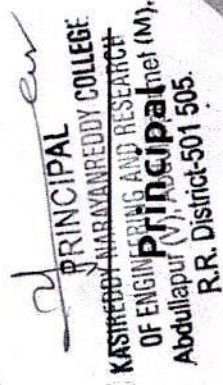 PRINCIPAL
KASIREDDY NARAYANREDDY COLLEGE
OF ENGINEERING AND RESEARCH
Principal
Abdullapur (V), (M),
R.R. District-501 505.